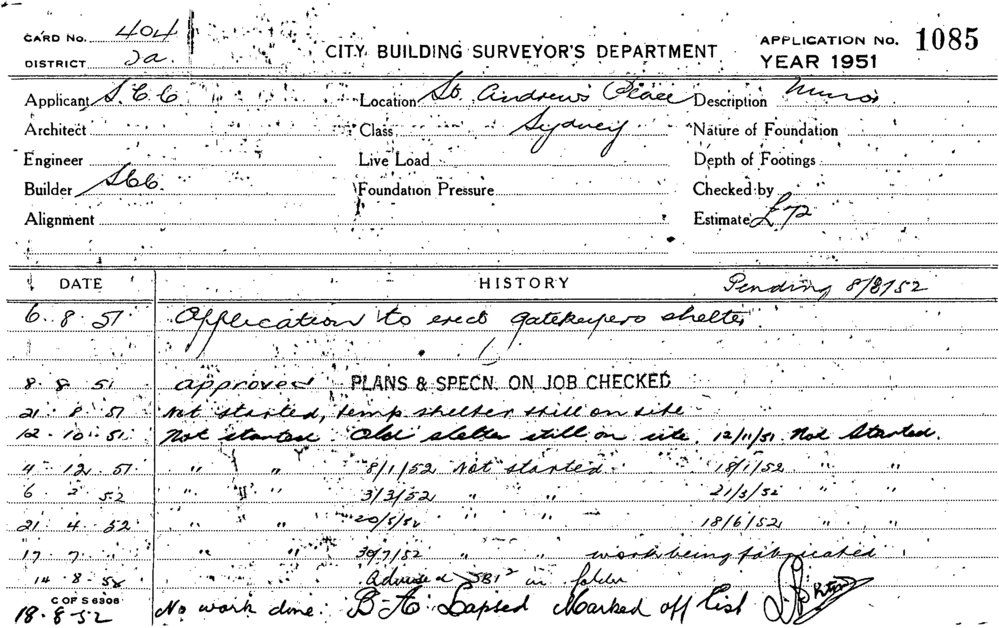 CARD No. 404
CITY BUILDING SURVEYOR'S DEPARTMENT
APPLICATION No. 1085
DISTRICT 2a
YEAR 1951
Applicant S.C.C. Location St. Andrews Place Description
Architect Class Sydney Nature of Foundation
Engineer Live Load Depth of Footings
Builder SCC. Foundation Pressure Checked by
Alignment Estimate £
DATE HISTORY Pending 8/8/52
6 . 8 . 51 Application to erect gatekeepers shelter
8 . 8 . 51 approved PLANS & SPECN. ON JOB CHECKED
21 . 8 . 51 Not started, temp shelter still on site
12 . 10 . 51 Not started. Old shelter still on site. 12/11/51 Not Started.
4 . 12 . 51 " " 8/1/52 Not started 18/1/52 " "
6 2 52 " " 3/3/52 " " 21/3/52 " "
21 . 4 . 52 " " 20/5/52 " " 18/6/52 " "
17 . 7 . " " " 30/7/52 " " work being fabricated
14 . 8 . 52 Advised in folder
C OF S 6306
18 . 8 . 52 No work done. B.A. Lapsed Marked off list